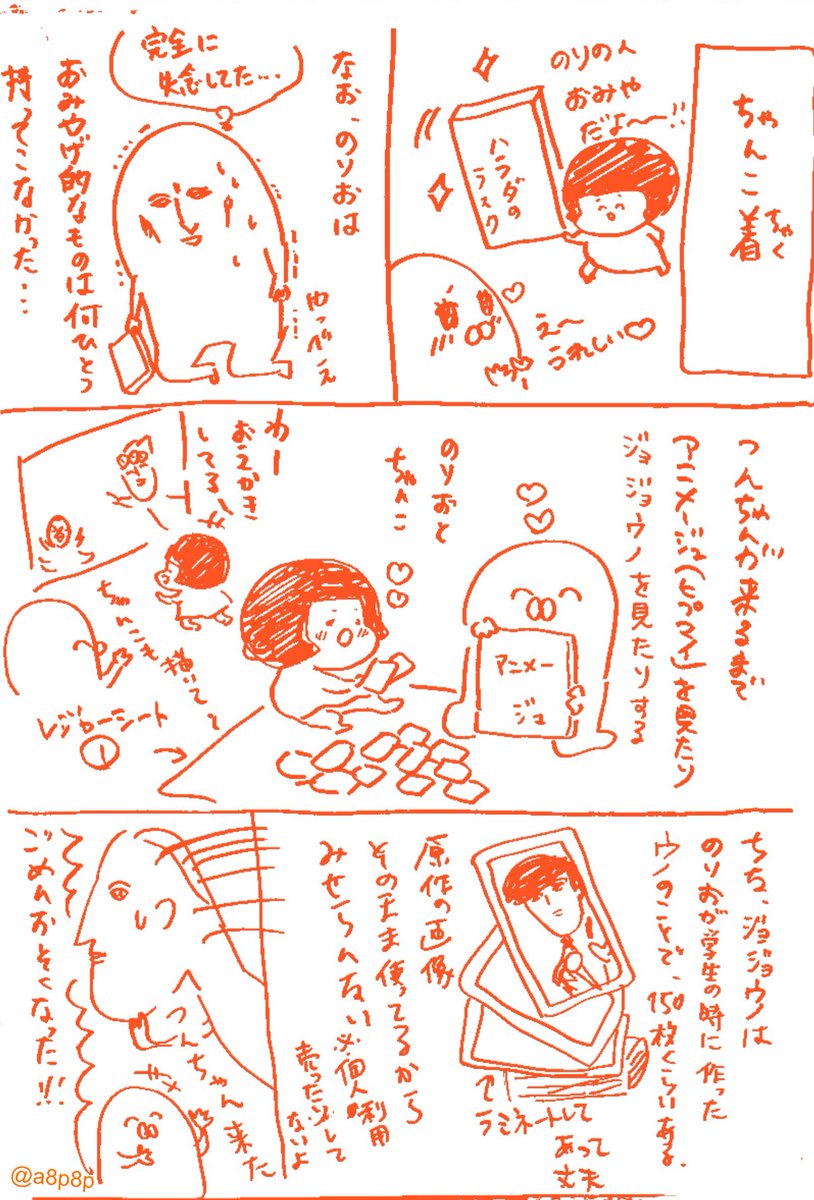 ちゃんこ着
ちゃく
のりの人
おみや
だよ〜!!
ハラダの
ラスク
え〜
うれしい♡
なお、のりおは
おみやげ的なものは何ひとつ
持ってこなかった…
完全に
失念してた…
やっべえ
つんちゃんが来るまで
アニメージュ(ヒプマイ)を見たり
ジョジョウノを見たりする
アニメー
ジュ
のりおと
ちゃんこ
わー
おえかき
してる〜
ちゃんこも描いて〜
レジャーシート
①
ちな、ジョジョウノは
のりおが学生の時に作った
ウノのことで、150枚くらいある。
原作の画像
そのまま使ってるから
みせらんない
※個人利用
売ったりして
ないよ
↑ラミネートして
あって
丈夫
つんちゃん来た
ごめんおそくなった!!!
@a8p8p